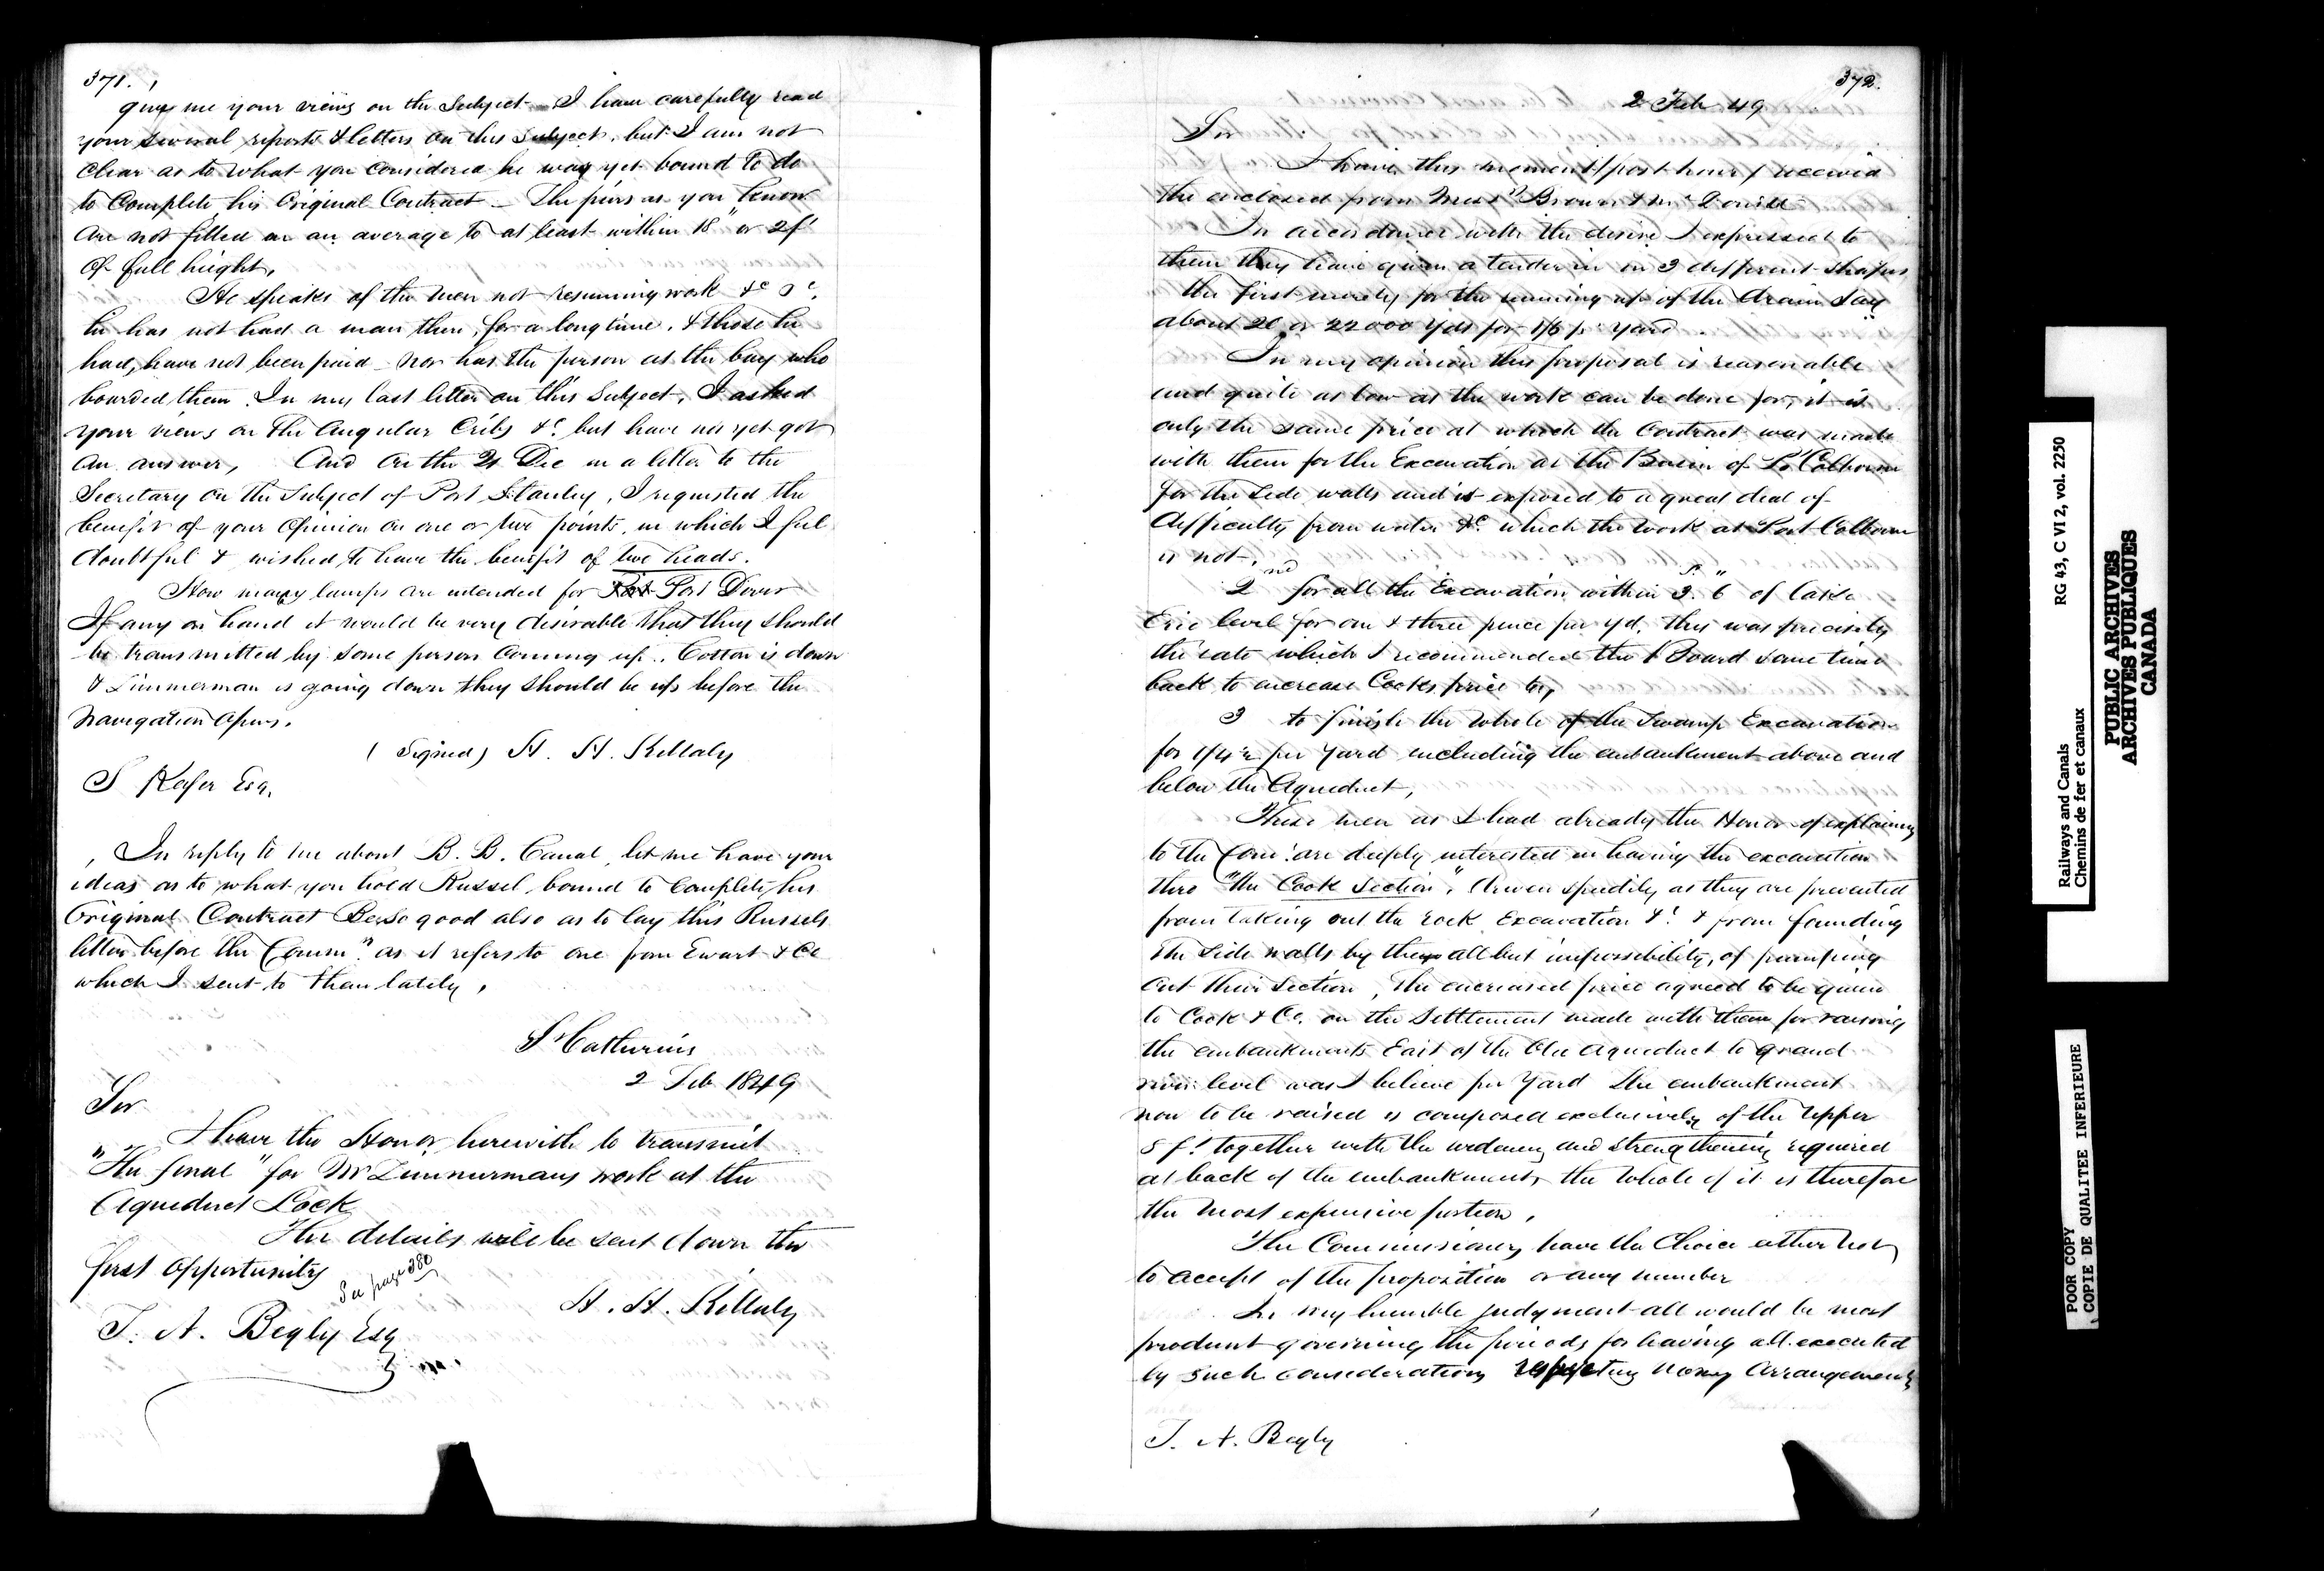 371.
give me your views on the Subject - I have carefully read
your several reports & letters on this subject, but I am not
clear as to what you considered he was yet bound to do
to Complete his Original Contract - The piers as you know
are not filled on an average to at least within 18" or 2ft
of full height,
He speaks of the men not resuming work &c &c.
he has not had a man there, for a long time, & those he
had, have not been paid - nor has the person at the bay who
boarded them. In my last letter on this Subject, I asked
your views on the Angular Cribs &c. but have not yet got
an answer, And on the 21 Dec in a letter to the
Secretary on the Subject of Port Stanley, I requested the
benefit of your Opinion on one or two points, in which I feel
doubtful & wished to have the benefit of two heads.
How many lamps are intended for Port Dover
If any on hand it would be very desirable that they should
be transmitted by some person Coming up. Cotton is down
& Zimmerman is going down they should be up before the
Navigation Opens.
(Signed) H. H. Killaly
S Keefer Esq.
In reply to me about B. B. Canal let me have your
ideas as to what you hold Russel bound to Complete his
Original Contract Be so good also as to lay this Russels
letter before the Commn. as it refers to one from Ewart & Co
which I sent to them lately,
St Catherines
2 Feb 1849
Sir
I have the Honor herewith to transmit
"The final" for Mr Zimmermans work at the
Aqueduct Lock
The details will be sent down the
first opportunity
See page 380
H. H. Killaly
T. A. Begly Esq
372.
2 Feb 49
Sir
I have this moment /post hour/ received
the enclosed from Messrs Brown & McDonell
In accordance with the desire I expressed to
them they have given a tender in in 3 different shapes
the first merely for the running up of the drain say
about 20 or 22000 yds for 1/6 pr yard.
In my opinion this proposal is reasonable
and quite as low as the work can be done for, it is
only the same price at which the Contract was made
with them for the Excavation at the Basin of Pt Colborne
for the side walls and is exposed to a great deal of
difficulty from water &c. which the work at Port Colborne
is not.
2nd for all the Excavation within 3. 6" of Lake
Erie level for one & three pence per yd. this was precisely
the rate which I recommended the Board some time
back to encrease Cooks price to,
3 to finish the whole of the Swamp Excavation
for 1/4½ per Yard including the embankment above and
below the Aqueduct,
These men as I had already the Honor of explaining
to the Com. are deeply interested in having the excavation
thro "the Cook Section", driven speedily as they are prevented
from taking out the rock Excavation &c. & from founding
the side walls by the all but impossibility, of pumping
out their Section, The encreased price agreed to be given
to Cook & Co. on the Settlement made with them for raising
the embankments East of the Old Aqueduct to grand
river level was I believe per Yard the embankment
now to be raised is composed exclusively of the upper
8 ft. together with the widening and strengthening required
at back of the embankment, the whole of it is therefore
the most expensive portion,
The Commissioners have the Choice either not
to accept of the proposition or any number
In my humble judgment all would be most
prudent governing the periods for having all executed
by such considerations respecting Money Arrangements
T. A. Begly
Railways and Canals
Chemins de fer et canaux
RG 43, C VI 2, vol. 2250
PUBLIC ARCHIVES
ARCHIVES PUBLIQUES
CANADA
POOR COPY
COPIE DE QUALITEE INFERIEURE